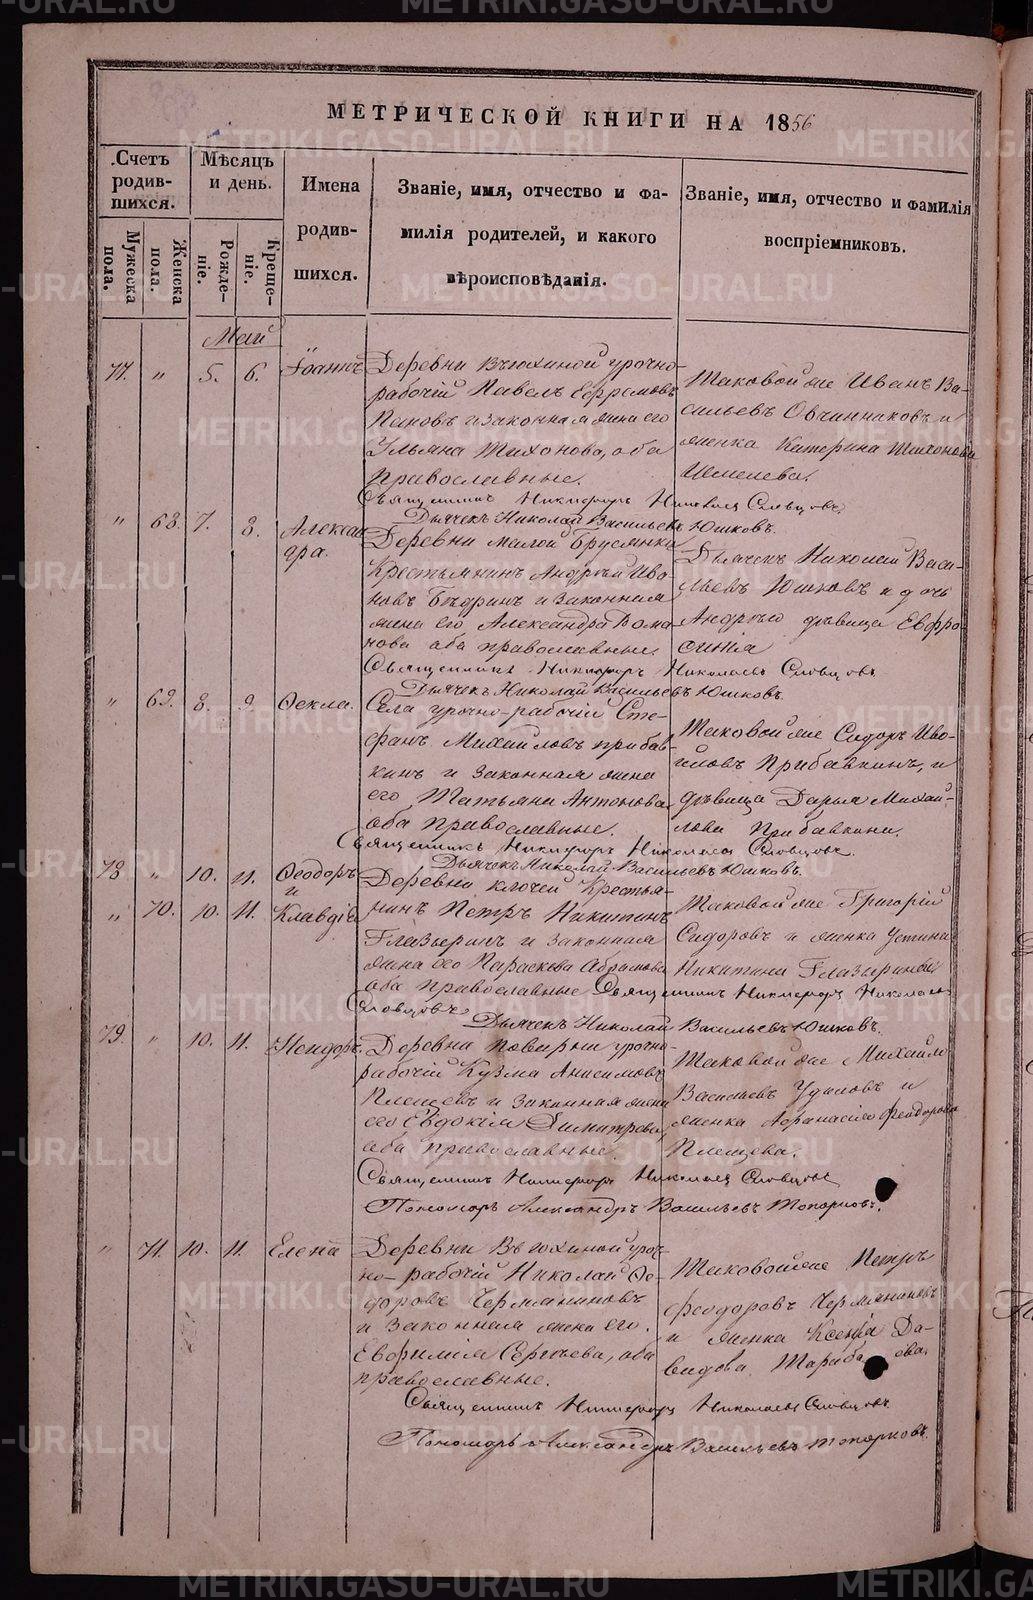 МЕТРИЧЕСКОЙ КНИГИ НА 1856
Счетъ родившихся.
Мѣсяцъ и день.
Имена родившихся.
Званіе, имя, отчество и фамилія родителей, и какого вѣроисповѣданія.
Званіе, имя, отчество и фамилія воспріемниковъ.
Мужеска пола.
Женска пола.
Рожденіе.
Крещеніе.
Май
77. " 5. 6. Іоаннъ
Деревни Вьюхиной урочно-
рабочій Павелъ Ефремовъ
Пановъ и законная жена его
Ульяна Тихонова, оба
православные.
Таковой же Иванъ Ва-
сильевъ Овчинниковъ и
женка Катерина Тихонова
Шемелева.
Священникъ Никифоръ Николаевъ Словцовъ.
Дьячекъ Николай Васильевъ Юшковъ.
" 68. 7. 8. Алексан
дра.
Деревни малой Брусянки
Крестьянинъ Андрей Ива
новъ Бѣдринъ и законная
жена его Александра Рома
нова оба православные
Дьячекъ Николай Васи-
льевъ Юшковъ и дочь
Андрея дѣвица Евфро-
синія
Священникъ Никифоръ Николаевъ Словцовъ
Дьячекъ Николай Васильевъ Юшковъ.
" 69. 8. 9. Ѳекла.
Села урочно-рабочій Сте-
фанъ Михайловъ прибав-
кинъ и законная жена
его Татьяна Антонова
оба православные.
Таковой же Сидоръ Ива-
новъ Прибавкинъ, и
дѣвица Дарья Михай-
лова Прибавкина.
Священникъ Никифоръ Николаевъ Словцовъ.
Дьячекъ Николай Васильевъ Юшковъ.
78. " 10. 11. Ѳеодоръ
и
" 70. 10. 11. Клавдія
Деревни ключей Крестья-
нинъ Петръ Никитинъ
Глазыринъ и законная
жена его Параскева Абрамова
оба православные
Таковой же Григорій
Сидоровъ и женка Устина
Никитина Глазырины
Священникъ Никифоръ Николаевъ
Словцовъ
Дьячекъ Николай Васильевъ Юшковъ.
79. " 10. 11. Исидоръ.
Деревни поварни урочно-
рабочій Кузма Анисимовъ
Плещевъ и законная жена
его Евдокія Димитрева,
оба православные.
Таковой же Михайло
Васильевъ Удиловъ и
женка Афанасія Феодорова
Плещева.
Священникъ Никифоръ Николаевъ Словцовъ
Пономарь Александръ Васильевъ Топорковъ.
" 71. 10. 11. Елена
Деревни Вьюхиной уроч-
но-рабочій Николай Ѳе-
доровъ Чермяниновъ
и законная жена его
Евфимія Сергѣева, оба
православные.
Таковой же Петръ
Феодоровъ Чермяниновъ
и женка Ксенія Да-
видова
Священникъ Никифоръ Николаевъ Словцовъ
Пономарь Александръ Васильевъ Топорковъ.
METRIKI.GASO-URAL.RU